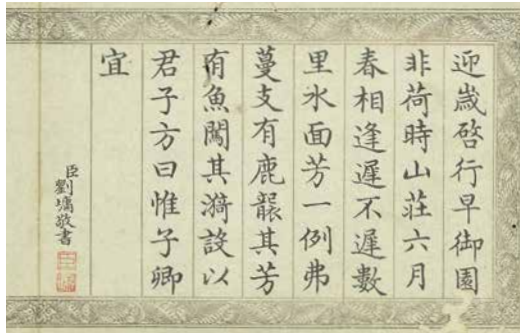 迎歲啓行早御園
非荷時山莊六月
春相逢遲不遲數
里水面芳一例弗
蔓支有鹿其芳
有魚闖其漪設以
君子方曰惟子卿
宜
臣劉墉敬書